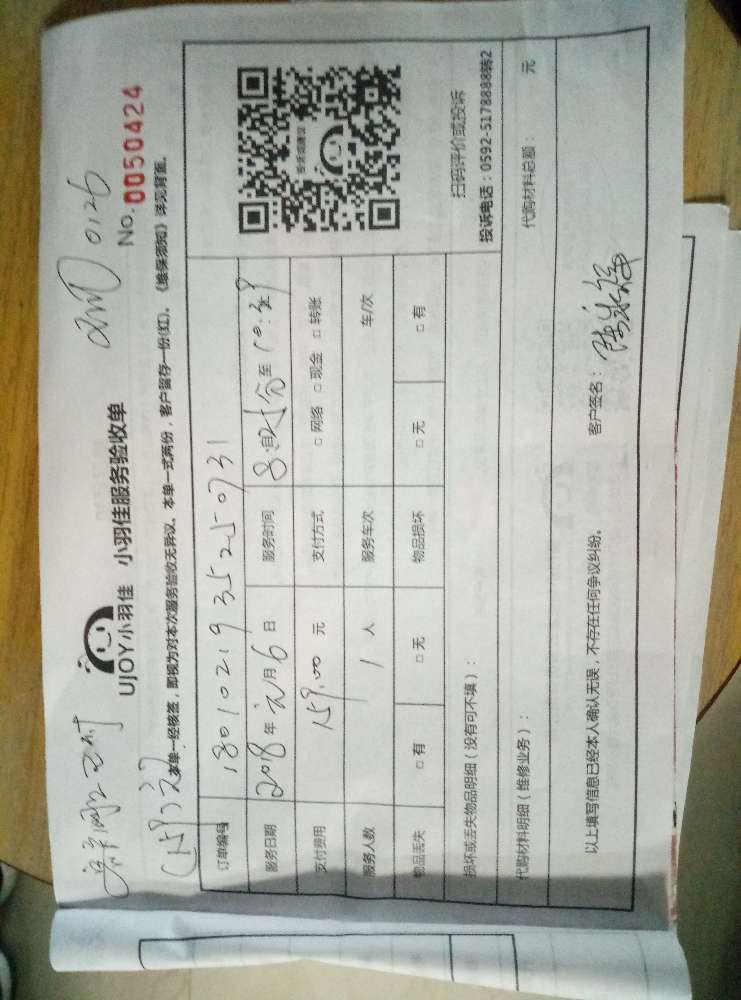 已付
0126
UJOY小羽佳 小羽佳服务验收单
No. 0050424
(159元)
本单一经核签，即视为对本次服务验收无异议。本单一式两份，客户留存一份(红)。《维保须知》详见背面。
订单编号 180102193525250731
服务日期 2018年元月6日 服务时间
支付费用 159.00 元 支付方式 □ 网络 □ 现金 □ 转账
服务人数 1 人 服务车次 车/次
物品丢失 □ 有 □ 无 物品损坏 □ 无 □ 有
扫码评价或投诉
投诉电话：0592-5178888转2
损坏或丢失物品明细（没有可不填）：
代购材料明细（维修业务）： 代购材料总额： 元
以上填写信息已经本人确认无误，不存在任何争议纠纷。 客户签名：